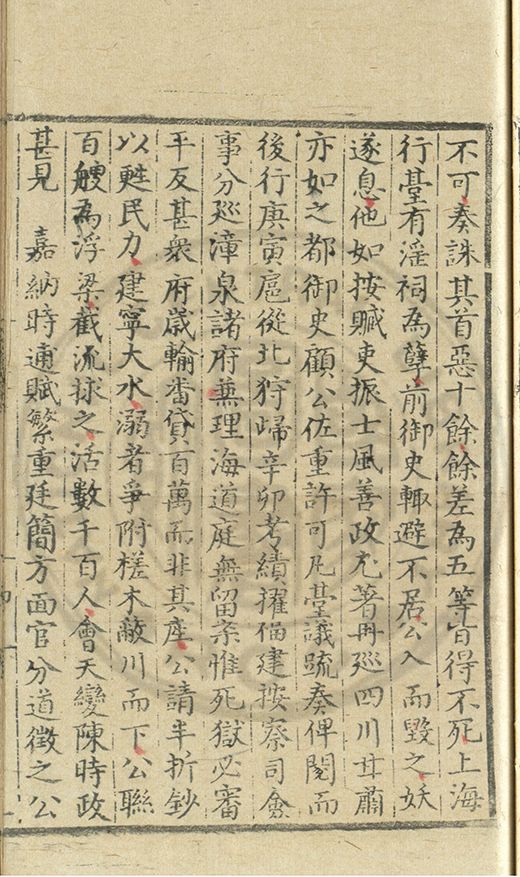 不可奏誅其首惡十餘餘差為五等皆得不死上海
行臺有滛祠為孽前御史輙避不居公入而毀之妖
遂息他如按贓吏振士風善政尤著再廵四川甘肅
亦如之都御史顧公佐重許可凡臺議疏奏俾閱而
後行庚寅扈從北狩歸辛卯考績擢福建按察司僉
事分廵漳泉諸府兼理海道庭無留案惟死獄必審
平反甚衆府歲輸番貨百萬而非其產公請半折鈔
以甦民力建寧大水溺者爭附槎木蔽川而下公聯
百艘為浮梁截流捄之活數千百人會天變陳時政
甚見 嘉納時逋賦繁重廷簡方面官分道徵之公